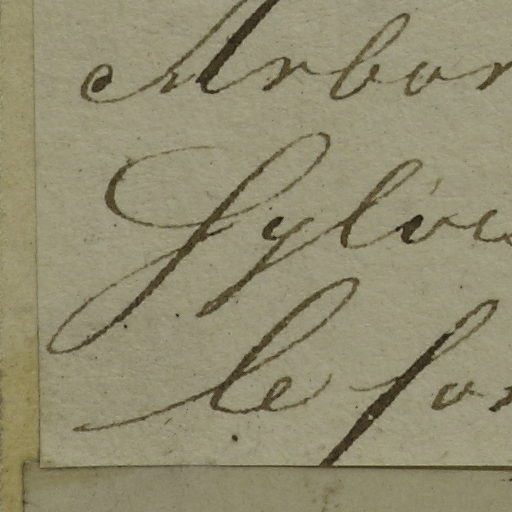 Arbor
Sylvic
le for